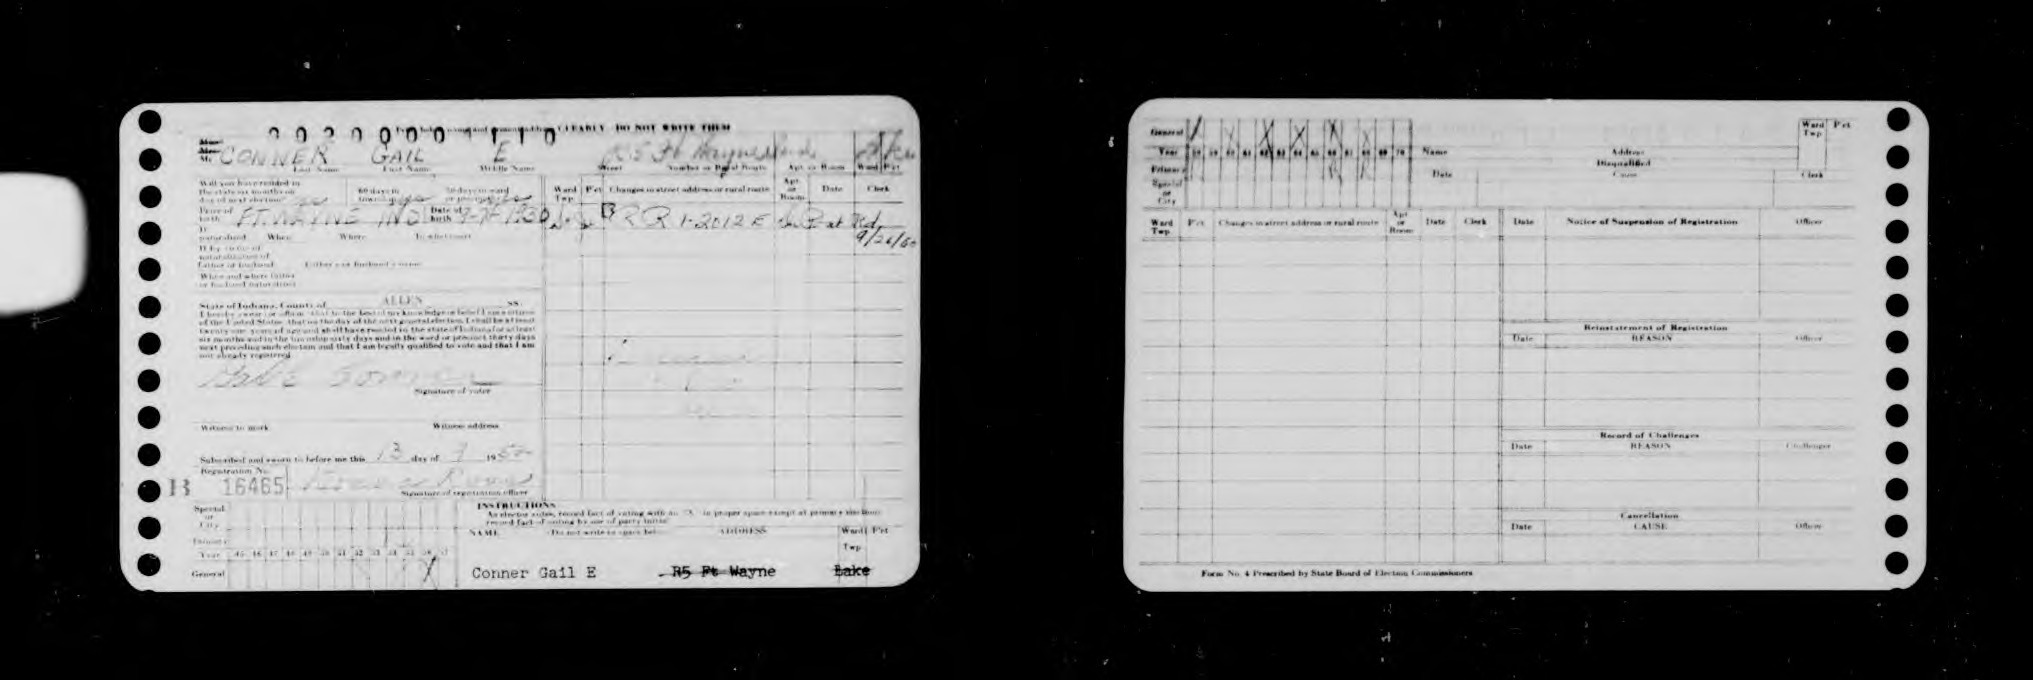 0020000 1110
CLEARLY - DO NOT WRITE THEM
CONNER GAIL E
R 5 Ft Wayne Ind
Last Name First Name Middle Name Street Number or Rural Route Apt. or Room Ward Pct
Will you have resided in
the state six months on
day of next election
60 days in
township yes
30 days in ward
or precinct yes
Ward
Twp.
Pct
Changes in street address or rural route
Apt.
or
Room
Date
Clerk
Place of
birth FT. WAYNE IND
Date of
birth
RR 1-2012 E
9/26/60
If
naturalized When Where To what court
If by virtue of
naturalization of
father or husband Father's or husband's name
When and where father
or husband naturalized
State of Indiana, County of ALLEN SS.
I hereby swear (or affirm) that to the best of my knowledge or belief I am a citizen
of the United States, that on the day of the next general election, I shall be at least
twenty-one years of age and shall have resided in the state of Indiana for at least
six months and in the township sixty days and in the ward or precinct thirty days
next preceding such election and that I am legally qualified to vote and that I am
not already registered.
Signature of voter
Witness to mark Witness address
Subscribed and sworn to before me this 13 day of 9 1952
Registration No.
B 16465
Signature of registration officer
Special
or
City
Primary
Year 45 46 47 48 49 50 51 52 53 54 55 56 57
General
INSTRUCTIONS
As elector votes, record fact of voting with an "X" in proper space except at primary elections
record fact of voting by use of party initial
NAME Do not write in space below ADDRESS Ward Pct
Twp.
Conner Gail E R5 Ft Wayne Lake
General
Year 58 59 60 61 62 63 64 65 66 67 68 69 70
Primary
Special
or
City
Name Address
Disqualified
Date Cause Clerk
Ward
Twp.
Pct
Ward
Twp.
Pct
Changes in street address or rural route
Apt.
or
Room
Date
Clerk
Date Notice of Suspension of Registration Officer
Reinstatement of Registration
Date REASON Officer
Record of Challenges
Date REASON Challenger
Cancellation
Date CAUSE Officer
Form No. 4 Prescribed by State Board of Election Commissioners